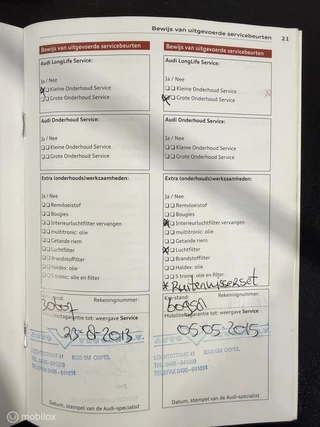 Bewijs van uitgevoerde servicebeurten 21
Bewijs van uitgevoerde servicebeurten
Audi LongLife Service:
Ja / Nee
Kleine Onderhoud Service
Grote Onderhoud Service
Audi Onderhoud Service:
Ja / Nee
Kleine Onderhoud Service
Grote Onderhoud Service
Extra (onderhouds)werkzaamheden:
Ja / Nee
Remvloeistof
Bougies
Interieurluchtfilter vervangen
multitronic: olie
Getande riem
Luchtfilter
Brandstoffilter
Haldex: olie
S tronic: olie en filter
Km-stand: Rekeningnummer:
Mobiliteitsgarantie tot: weergave Service
23-8-2013
Datum, stempel van de Audi-specialist
Bewijs van uitgevoerde servicebeurten
Audi LongLife Service:
Ja / Nee
Kleine Onderhoud Service
Grote Onderhoud Service
Audi Onderhoud Service:
Ja / Nee
Kleine Onderhoud Service
Grote Onderhoud Service
Extra (onderhouds)werkzaamheden:
Ja / Nee
Remvloeistof
Bougies
Interieurluchtfilter vervangen
multitronic: olie
Getande riem
Luchtfilter
Brandstoffilter
Haldex: olie
S tronic: olie en filter
* Ruitenwisserset
Km-stand: Rekeningnummer:
Mobiliteitsgarantie tot: weergave Service
05-05-2015
Datum, stempel van de Audi-specialist
© mobilox